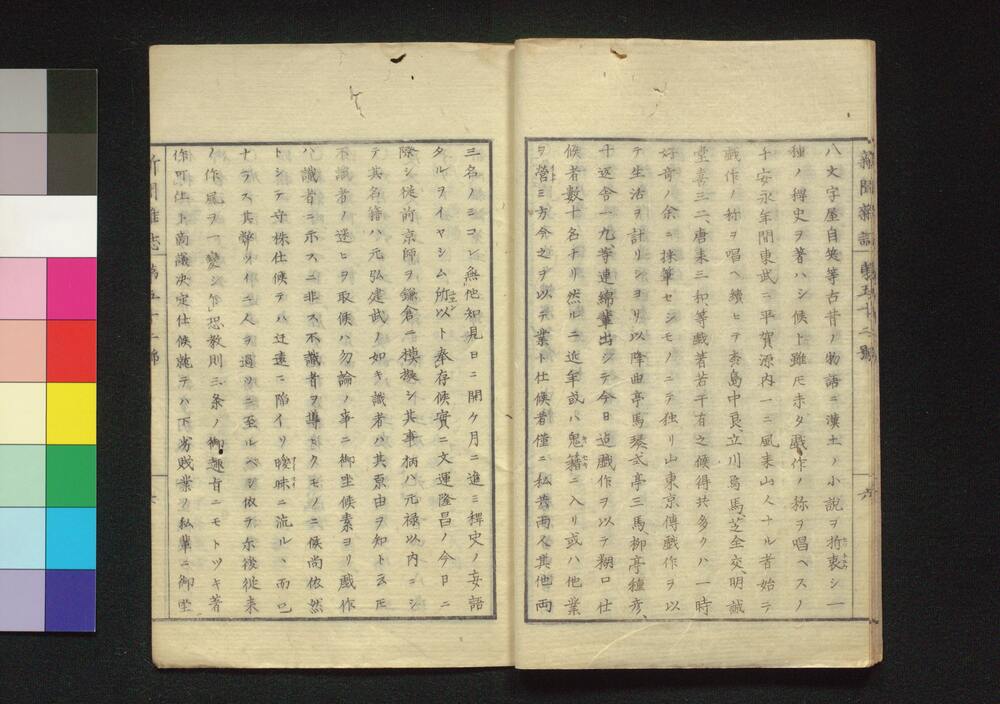 新聞雑誌 第五十二號
六
八文字屋自笑等古昔ノ物語ニ漢土ノ小説ヲ折衷シ一
種ノ稗史ヲ著ハシ候ト雖𪜈未タ戯作ノ称ヲ唱ヘスノ
千安永年間東武ニ平賀源内一ニ風来山人ナル者始テ
戯作ノ称ヲ唱ヘ續ヒテ森島中良、立川焉馬、芝全交、明誠
堂喜三二、唐来三和、等戯著若干有之候得共多クハ一時
好奇ノ余ニ採筆セシモノニテ独リ山東京傳戯作ヲ以
テ生活ヲ計リシヨリ以降曲亭馬琴、式亭三馬、柳亭種彦、
十返舎一九等連綿輩出シテ今日迠戯作ヲ以テ糊口仕
候者数十名ナリ然ルニ近年或ハ鬼籍ニ入リ或ハ他業
ヲ營ミ方今之ヲ以テ業ト仕候者僅ニ私共両人其他両
三名ノミコレ無他知見日ニ開ケ月ニ進ミ稗史ノ妄語
タルヲイヤシム所以ト奉存候實ニ文運隆昌ノ今日ニ
際シ従前京師ヲ鎌倉ニ模擬シ其事柄ハ元禄以内ニシ
テ其名籍ハ元弘建武ノ如キ識者ハ其原由ヲ知ト云𪜈
不識者ノ迷ヒヲ取候ハ勿論ノ事ニ御坐候素ヨリ戯作
ハ識者ニ示スニ非ス不識者ヲ導ヒクモノニ候尚依然
トシテ守株仕候テハ迂遠ニ陥イリ曖昧ニ流ルヽ而已
ナラス其弊ツイニ人ヲ過ツニ至ルベシ依テ尓後従来
ノ作風ヲ一変シ乍恐教則三条ノ御趣旨ニモトツキ著
作可仕ト商議決定仕候就テハ下劣賎業ノ私輩ニ御坐
新聞雑誌 第五十二號